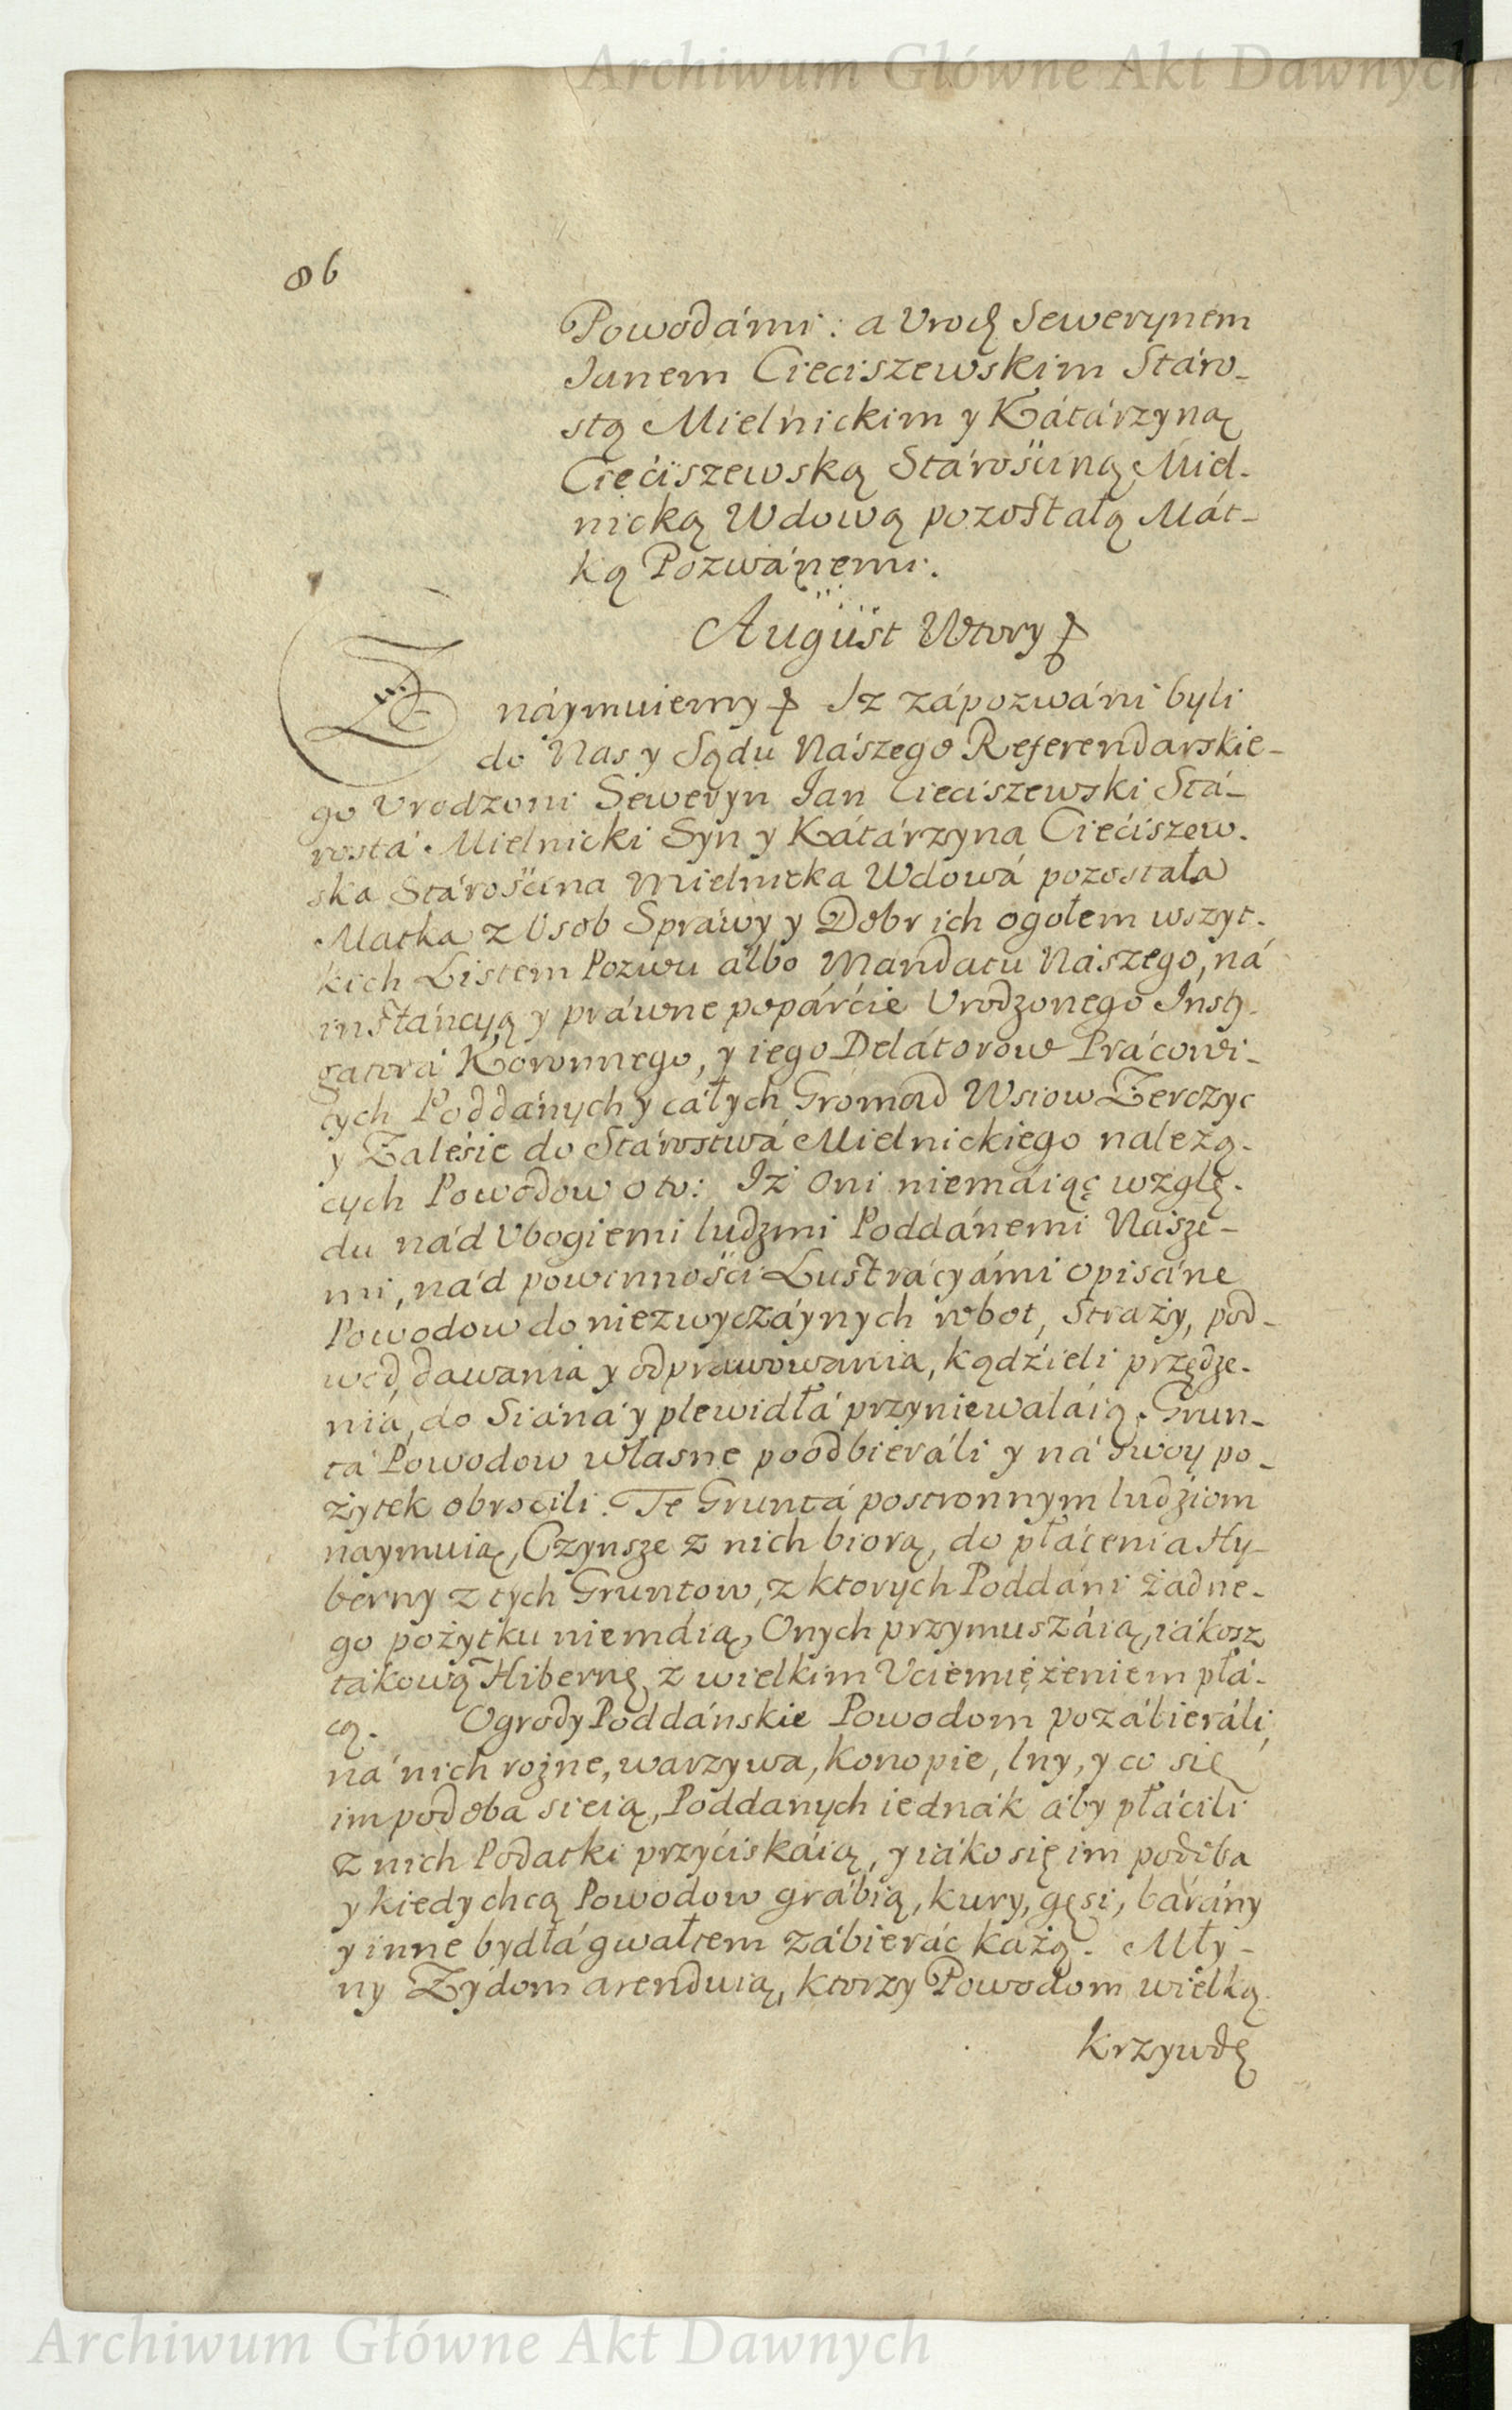 Archiwum Główne Akt Dawnych
86
Powodámi: a Urodz Sewerynem
Janem Cieciszewskim Stáro-
stą Mielnickim y Kátárzyną
Cieciszewską Stárościną Miel-
nicką Wdową pozostałą Mát-
ką Pozwánemi.
August Wtory
Znáymuiemy Iz zápozwáni byli
do Nas y Sądu Nászego Referendarskie-
go Vrodzoni Seweryn Jan Cieciszewski Stá-
rostá Mielnicki Syn y Kátárzyna Cieciszew-
ska Stárościna Mielnicka Wdowá pozostała
Matka z Osob Spráwy y Dobr ich ogołem wszyt-
kich Listem Pozwu albo Mandatu Nászego, ná
instáncyą y práwne popárcie Vrodzonego Insty-
gatorá Koronnego, y iego Delátorow Prácowi-
tych Poddánych y cáłych Gromad Wsiow Zerczyc
y Zalesie do Stárostwá Mielnickiego nalezą-
cych Powodow o to: Iż Oni niemáiąc wzglę-
du nád Vbogiemi ludzmi Poddánemi Násze-
mi, nád powinności Lustrácyámi opisáne
Powodow do niezwyczáynych robot, Straży, pod-
wod, dawania y odprawowania, kądzieli przędze-
nia, do Siáná y plewidłá przyniewaláią. Grun-
tá Powodow własne poodbieráli y ná swoy po-
żytek obrocili. Te Gruntá postronnym ludziom
naymuią, Czynsze z nich biorą, do płácenia Hy-
berny z tych Gruntow, z ktorych Poddáni żadne-
go pożytku niemáią, Onych przymuszáią, iákosz
tákową Hibernę z wielkim Vciemiężeniem płá-
cą. Ogrody Poddánskie Powodom pozábieráli,
ná nich rożne, warzywa, konopie, lny, y co się
im podoba sieią, Poddanych iednák áby płácili
z nich Podatki przyciskáią, y iáko się im podoba
y kiedy chcą Powodow grábią, kury, gęsi, báràny
y inne bydłá gwałtem zábieráć każą. Mły-
ny Zydom arenduią, ktorzy Powodom wielką
krzywdę
Archiwum Główne Akt Dawnych